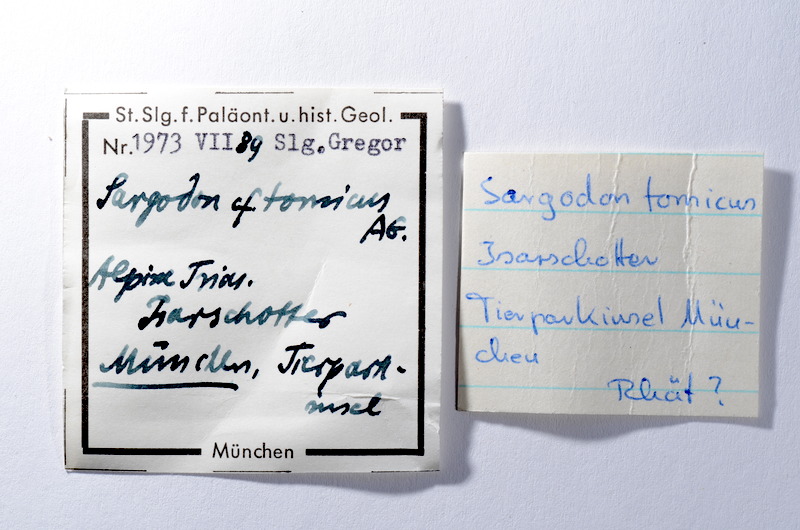 St. Slg. f. Paläont. u. hist. Geol.
Nr. 1973 VII 89 Slg. Gregor
Sargodon cf tomicus
AG.
Alpine Trias.
Isarschotter
München, Tierpark-
insel
München
Sargodon tomicus
Isarschotter
Tierparkinsel Mün-
chen
Rhät?